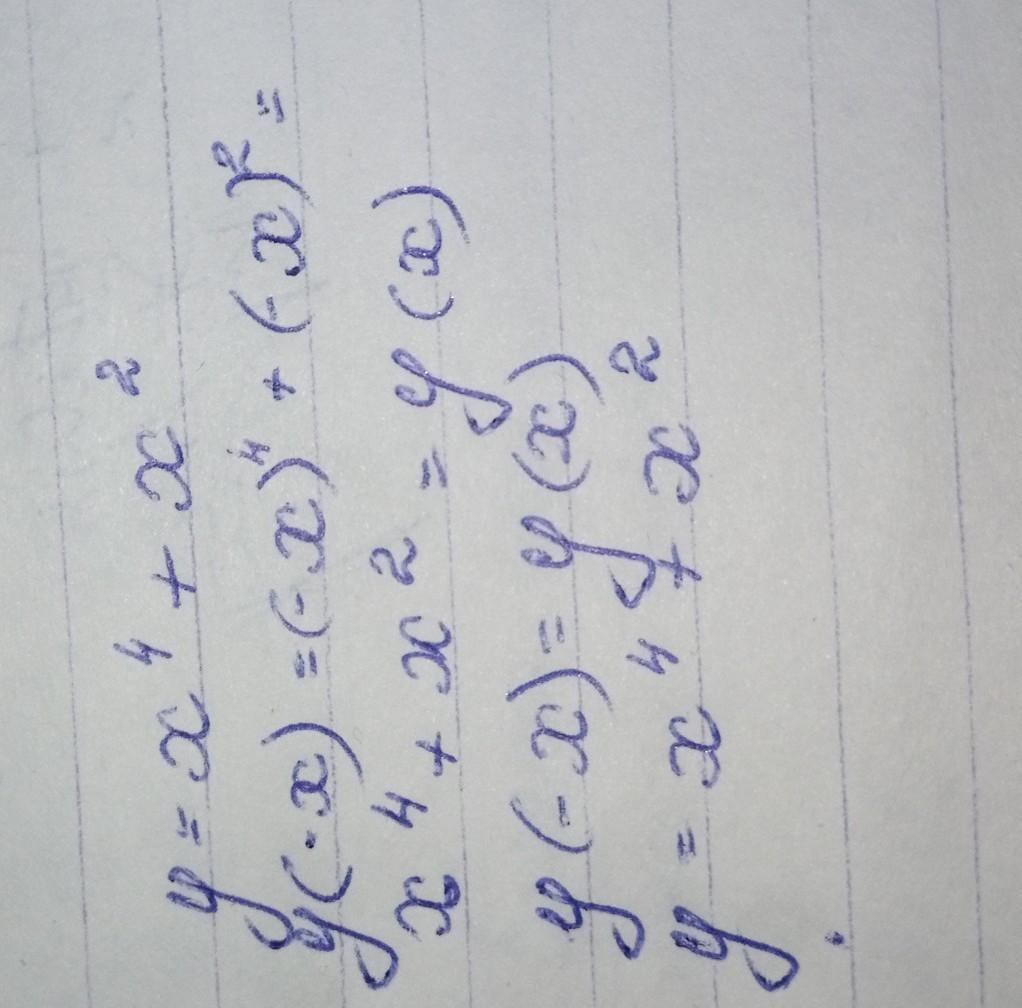 y = x⁴ + x²
y(-x) = (-x)⁴ + (-x)² =
x⁴ + x² = y(x)
y(-x) = y(x)
y = x⁴ + x²
.